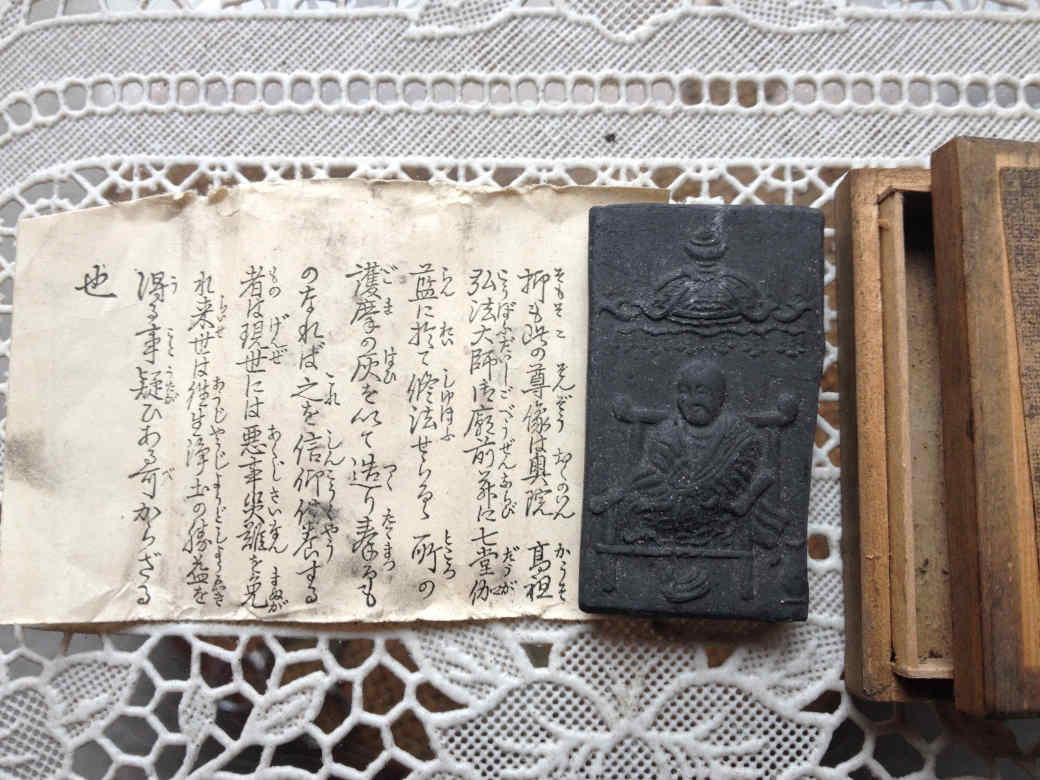 抑も此の尊像は奥院 高祖
弘法大師御廟前並に七堂伽
藍に於て修法せらるゝ所の
護摩の灰を以て造り奉るも
のなれば之を信仰供養する
者は現世には悪事災難を免
れ来世は往生浄土の勝益を
得る事疑ひある可からざる
也